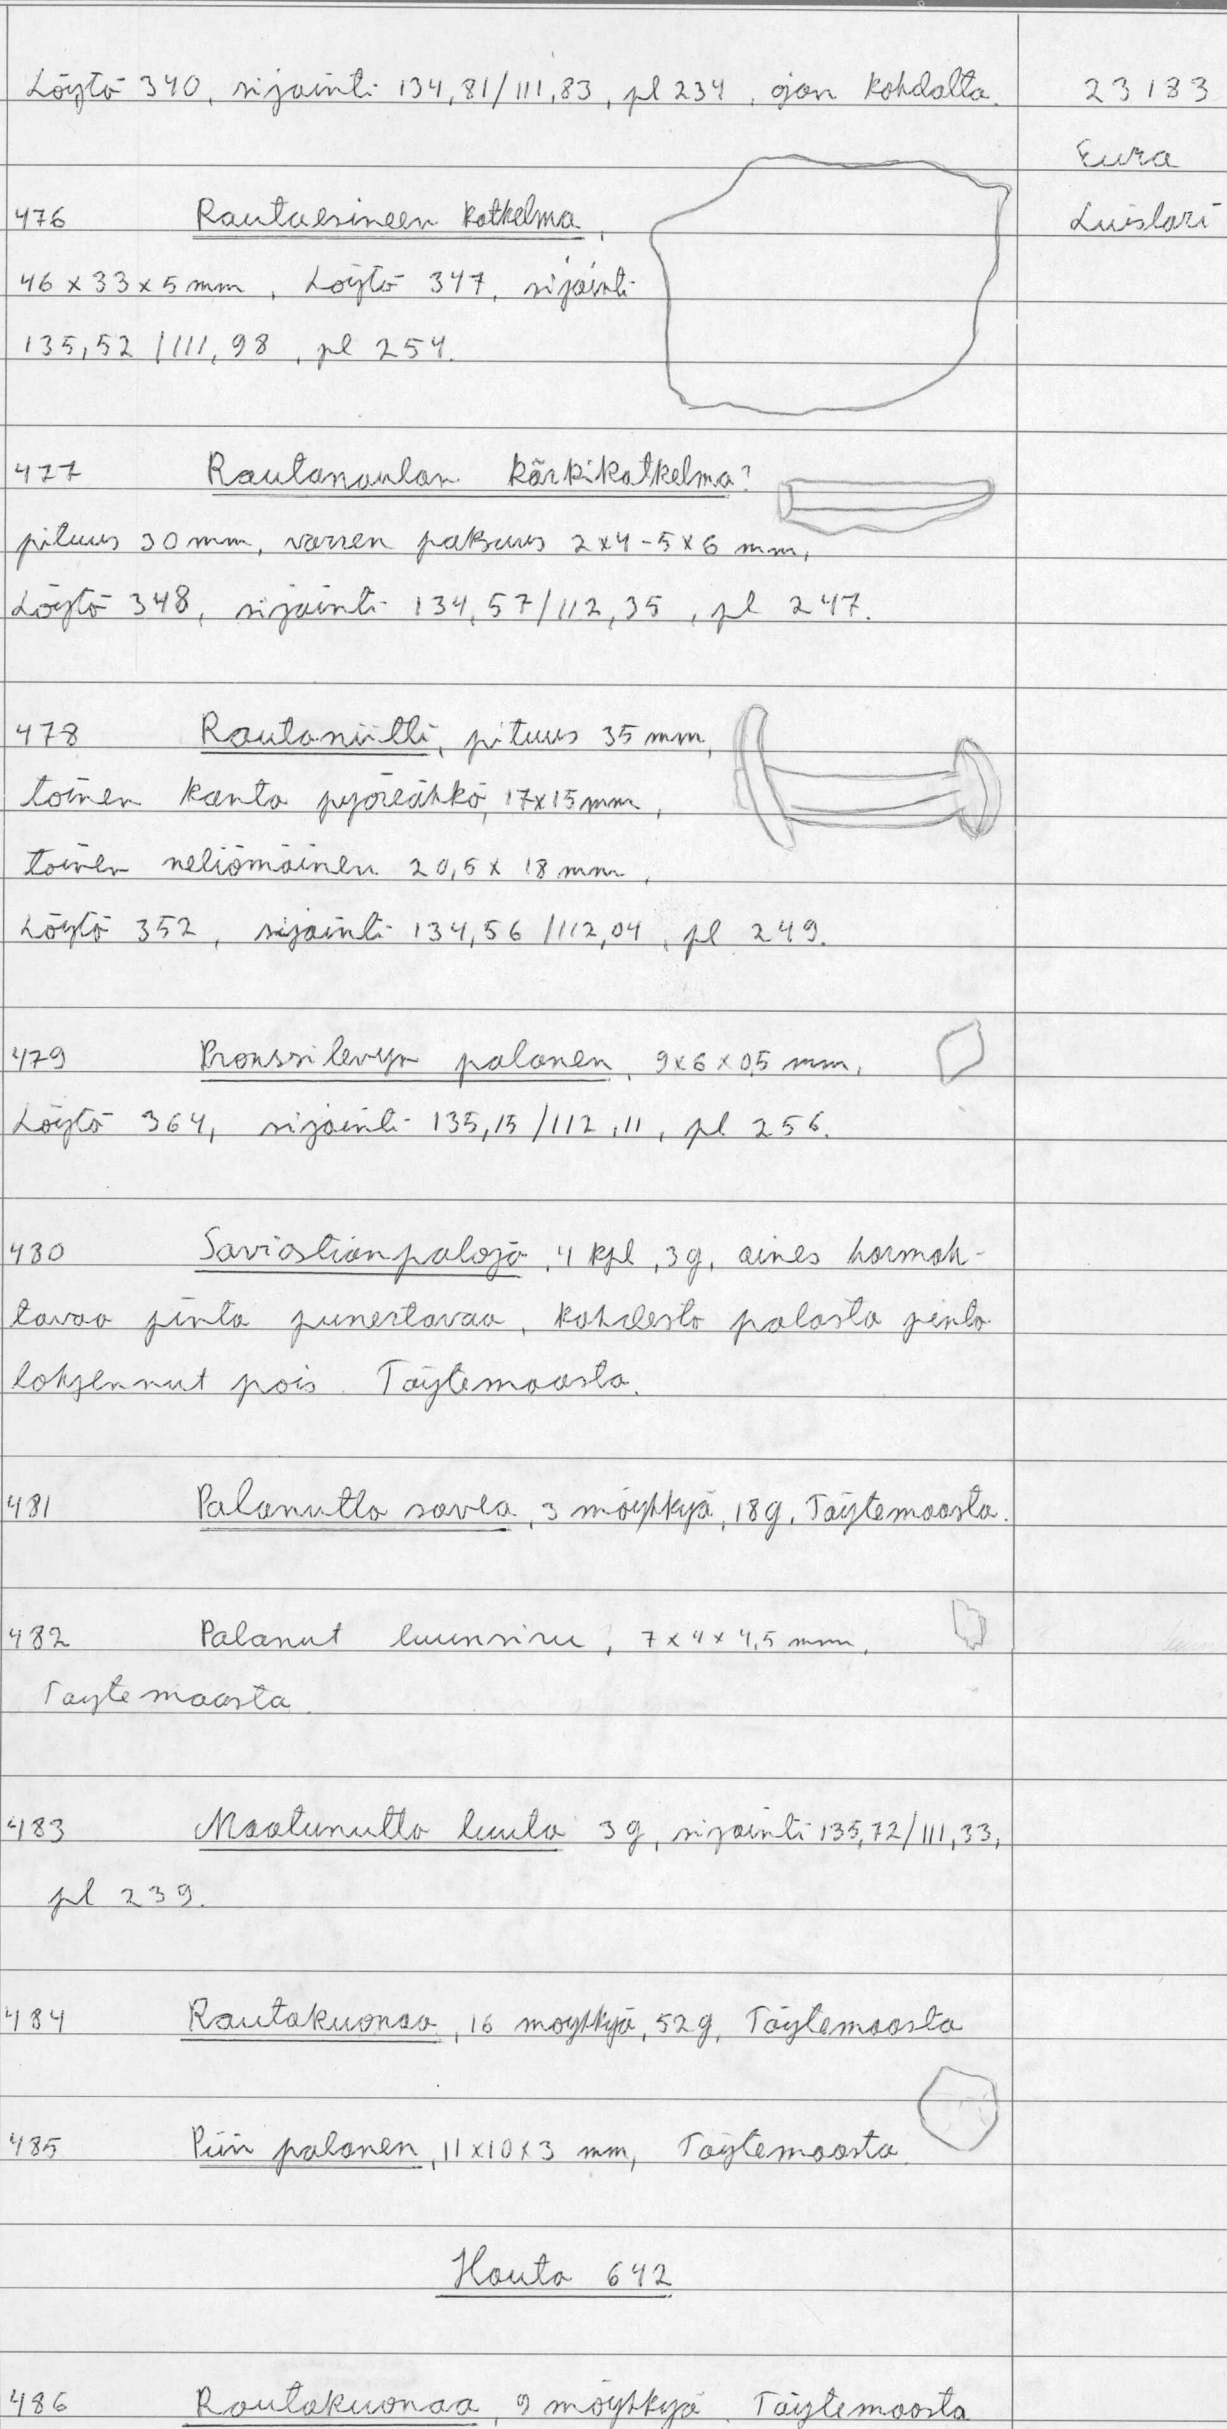 Löytö 340, sijainti 134,81/111,83, pl 234, ojan kohdalta.
23183
Eura
Luistari
476 Rautaesineen katkelma,
46 x 33 x 5 mm, Löytö 347, sijainti
135,52/111,98, pl 254.
477 Rautanaulan kärkikatkelma?
pituus 30 mm, varren paksuus 2x4-5x6 mm,
Löytö 348, sijainti 134,57/112,35, pl 247.
478 Rautaniitti, pituus 35 mm,
toinen kanta pyöreähkö, 17x15 mm,
toinen neliömäinen 20,5 x 18 mm,
Löytö 352, sijainti 134,56/112,04, pl 249.
479 Pronssilevyn palanen, 9x6x0,5 mm,
Löytö 364, sijainti 135,15/112,11, pl 256.
480 Saviastianpaloja, 4 kpl, 3g, aines harmah-
tavaa pinta punertavaa, kahdesta palasta pinta
lohjennut pois. Täytemaasta.
481 Palanutta savea, 3 möykkyä, 18g, Täytemaasta.
482 Palanut luunsiru, 7x4x4,5 mm,
Täytemaasta.
483 Maatunutta luuta 3g, sijainti 135,72/111,33,
pl 239.
484 Rautakuonaa, 16 möykkyä, 52g, Täytemaasta
485 Piin palanen, 11x10x3 mm, Täytemaasta.
Hauta 642
486 Rautakuonaa, 9 möykkyä. Täytemaasta